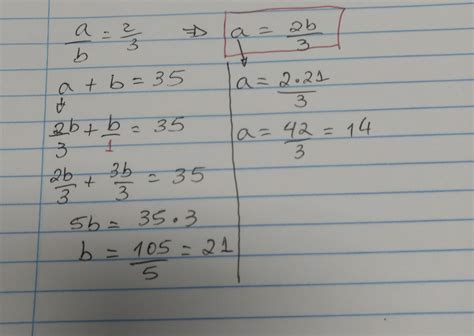 a/b = 2/3 => a = 2b/3
a + b = 35
2b/3 + b/1 = 35
2b/3 + 3b/3 = 35
5b = 35.3
b = 105/5 = 21
a = 2.21/3
a = 42/3 = 14